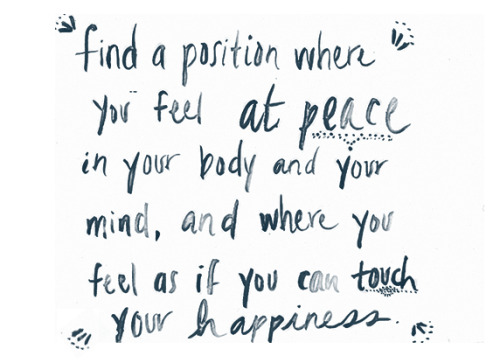 find a position where
you feel at peace
in your body and your
mind, and where you
feel as if you can touch
your happiness.